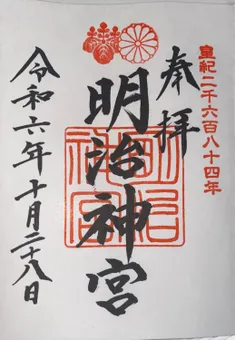 皇紀二千六百八十四年
奉拝
明治神宮
令和六年十月二十八日
明治神宮